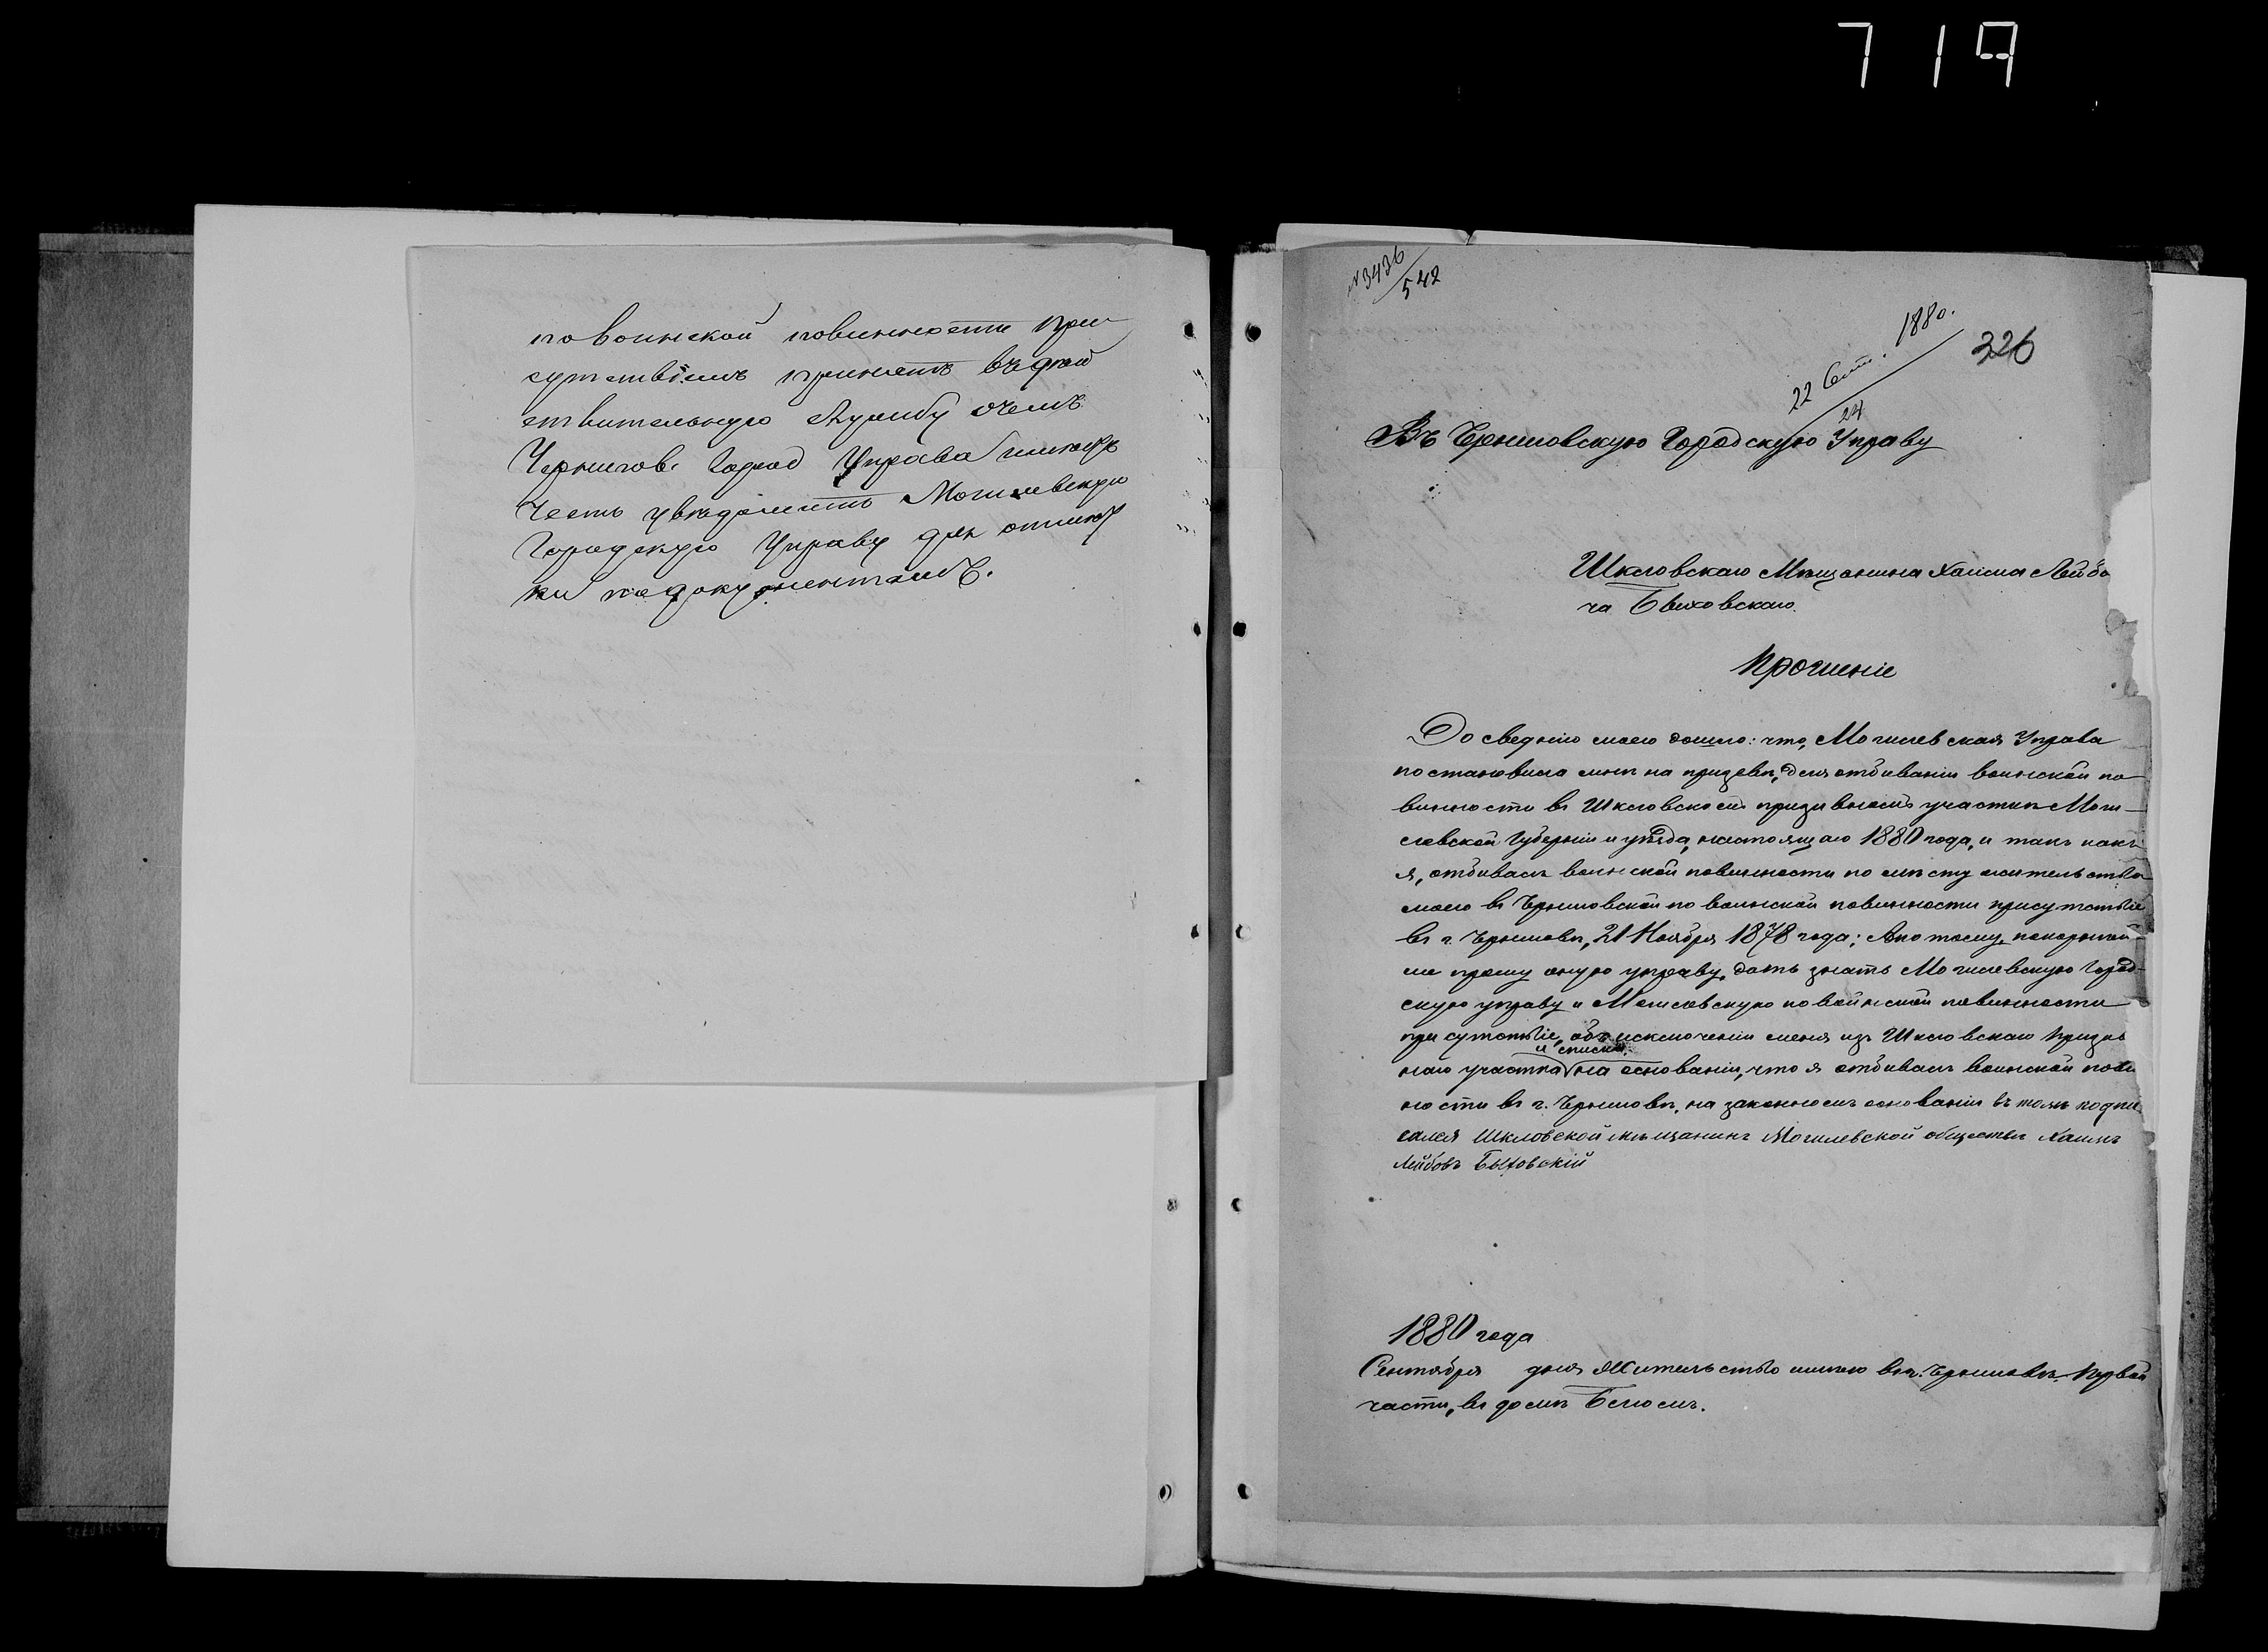 719
по воинской повинности при
сутствіемъ принятъ въ дѣй
ствительную службу о чемъ
Чернигов. Город Управа имѣетъ
честь увѣдомить Могилевскую
Городскую Управу для отмѣт
ки по документамъ.
№ 3436
542
22 Сент. 1880.
24
326
Въ Чрниговскую Городскую Управу
Шкловскаго Мѣщанина Хаима Лейбо
ча Быховскаго.
Прошеніе
До сведнію моего дошло: что, Могилевская Управа
постановила мнѣ на призовъ, для отбиванія воинской по
винности въ Шкловскомъ призивномъ участкѣ Моги-
левской Губерніи и уѣзда, настоящаго 1880 года, и такъ какъ
я, отбивалъ воинской повинности по мѣсту жительства
моего въ Чрниговской по воинской повинности присутствіе
въ г. Чрниговѣ, 21 Ноября 1878 года; А потому, покорнѣй-
ше прошу оную управу, дать знать Могилевскую Город-
скую управу и Могилевскую по воинской повинности
присутствіе, объ исключеніи меня изъ Шкловскаго призы
и списка
наго участка на основаніи, что я отбивалъ воинской пови
ности въ г. Чрниговѣ, на законномъ основаніи въ томъ подпи
сался Шкловской мѣщанинъ Могилевской обществѣ Хаимъ
Лейбовъ Быховскій
1880 года
Сентября дня Жительство имѣю въ г. Чрниговѣ, Првой
части, въ домѣ